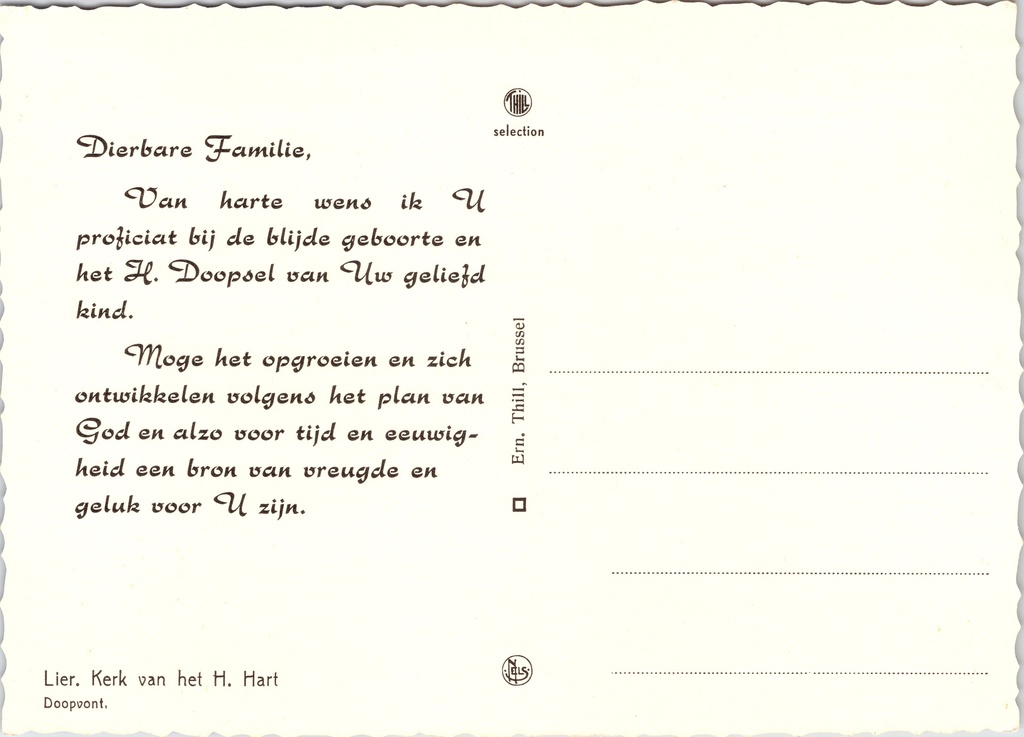 THILL
selection
Dierbare Familie,
Van harte wens ik U
proficiat bij de blijde geboorte en
het H. Doopsel van Uw geliefd
kind.
Moge het opgroeien en zich
ontwikkelen volgens het plan van
God en alzo voor tijd en eeuwig-
heid een bron van vreugde en
geluk voor U zijn.
Ern. Thill, Brussel
Lier. Kerk van het H. Hart
Doopvont.
NELS